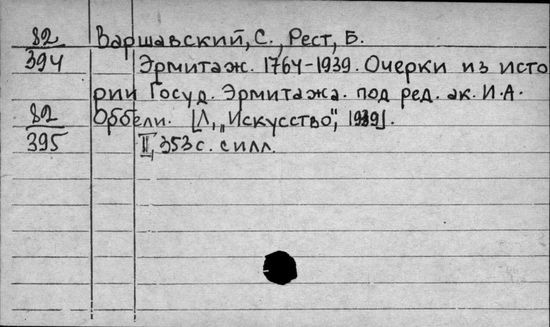 82 Варшавский, С., Рест, Б.
394 Эрмитаж. 1764-1939. Очерки из исто
рии Госуд. Эрмитажа. под ред. ак. И.А.
82 Орбели. [Л, „Искусство", 1939].
395 II, 353 с. с илл.